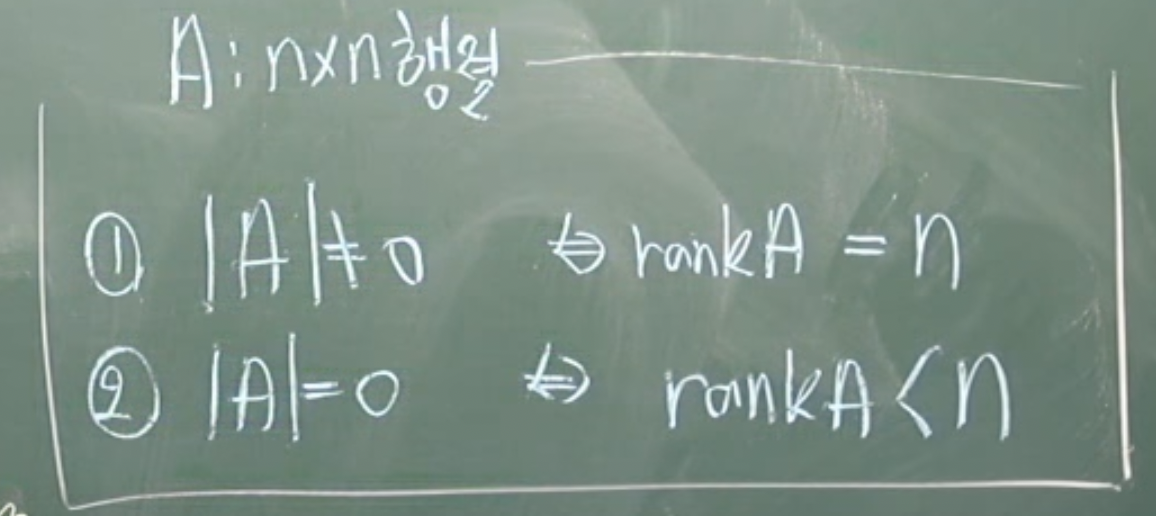 A : n×n 행렬
① |A| ≠ 0 ⇔ rankA = n
② |A| = 0 ⇔ rankA < n